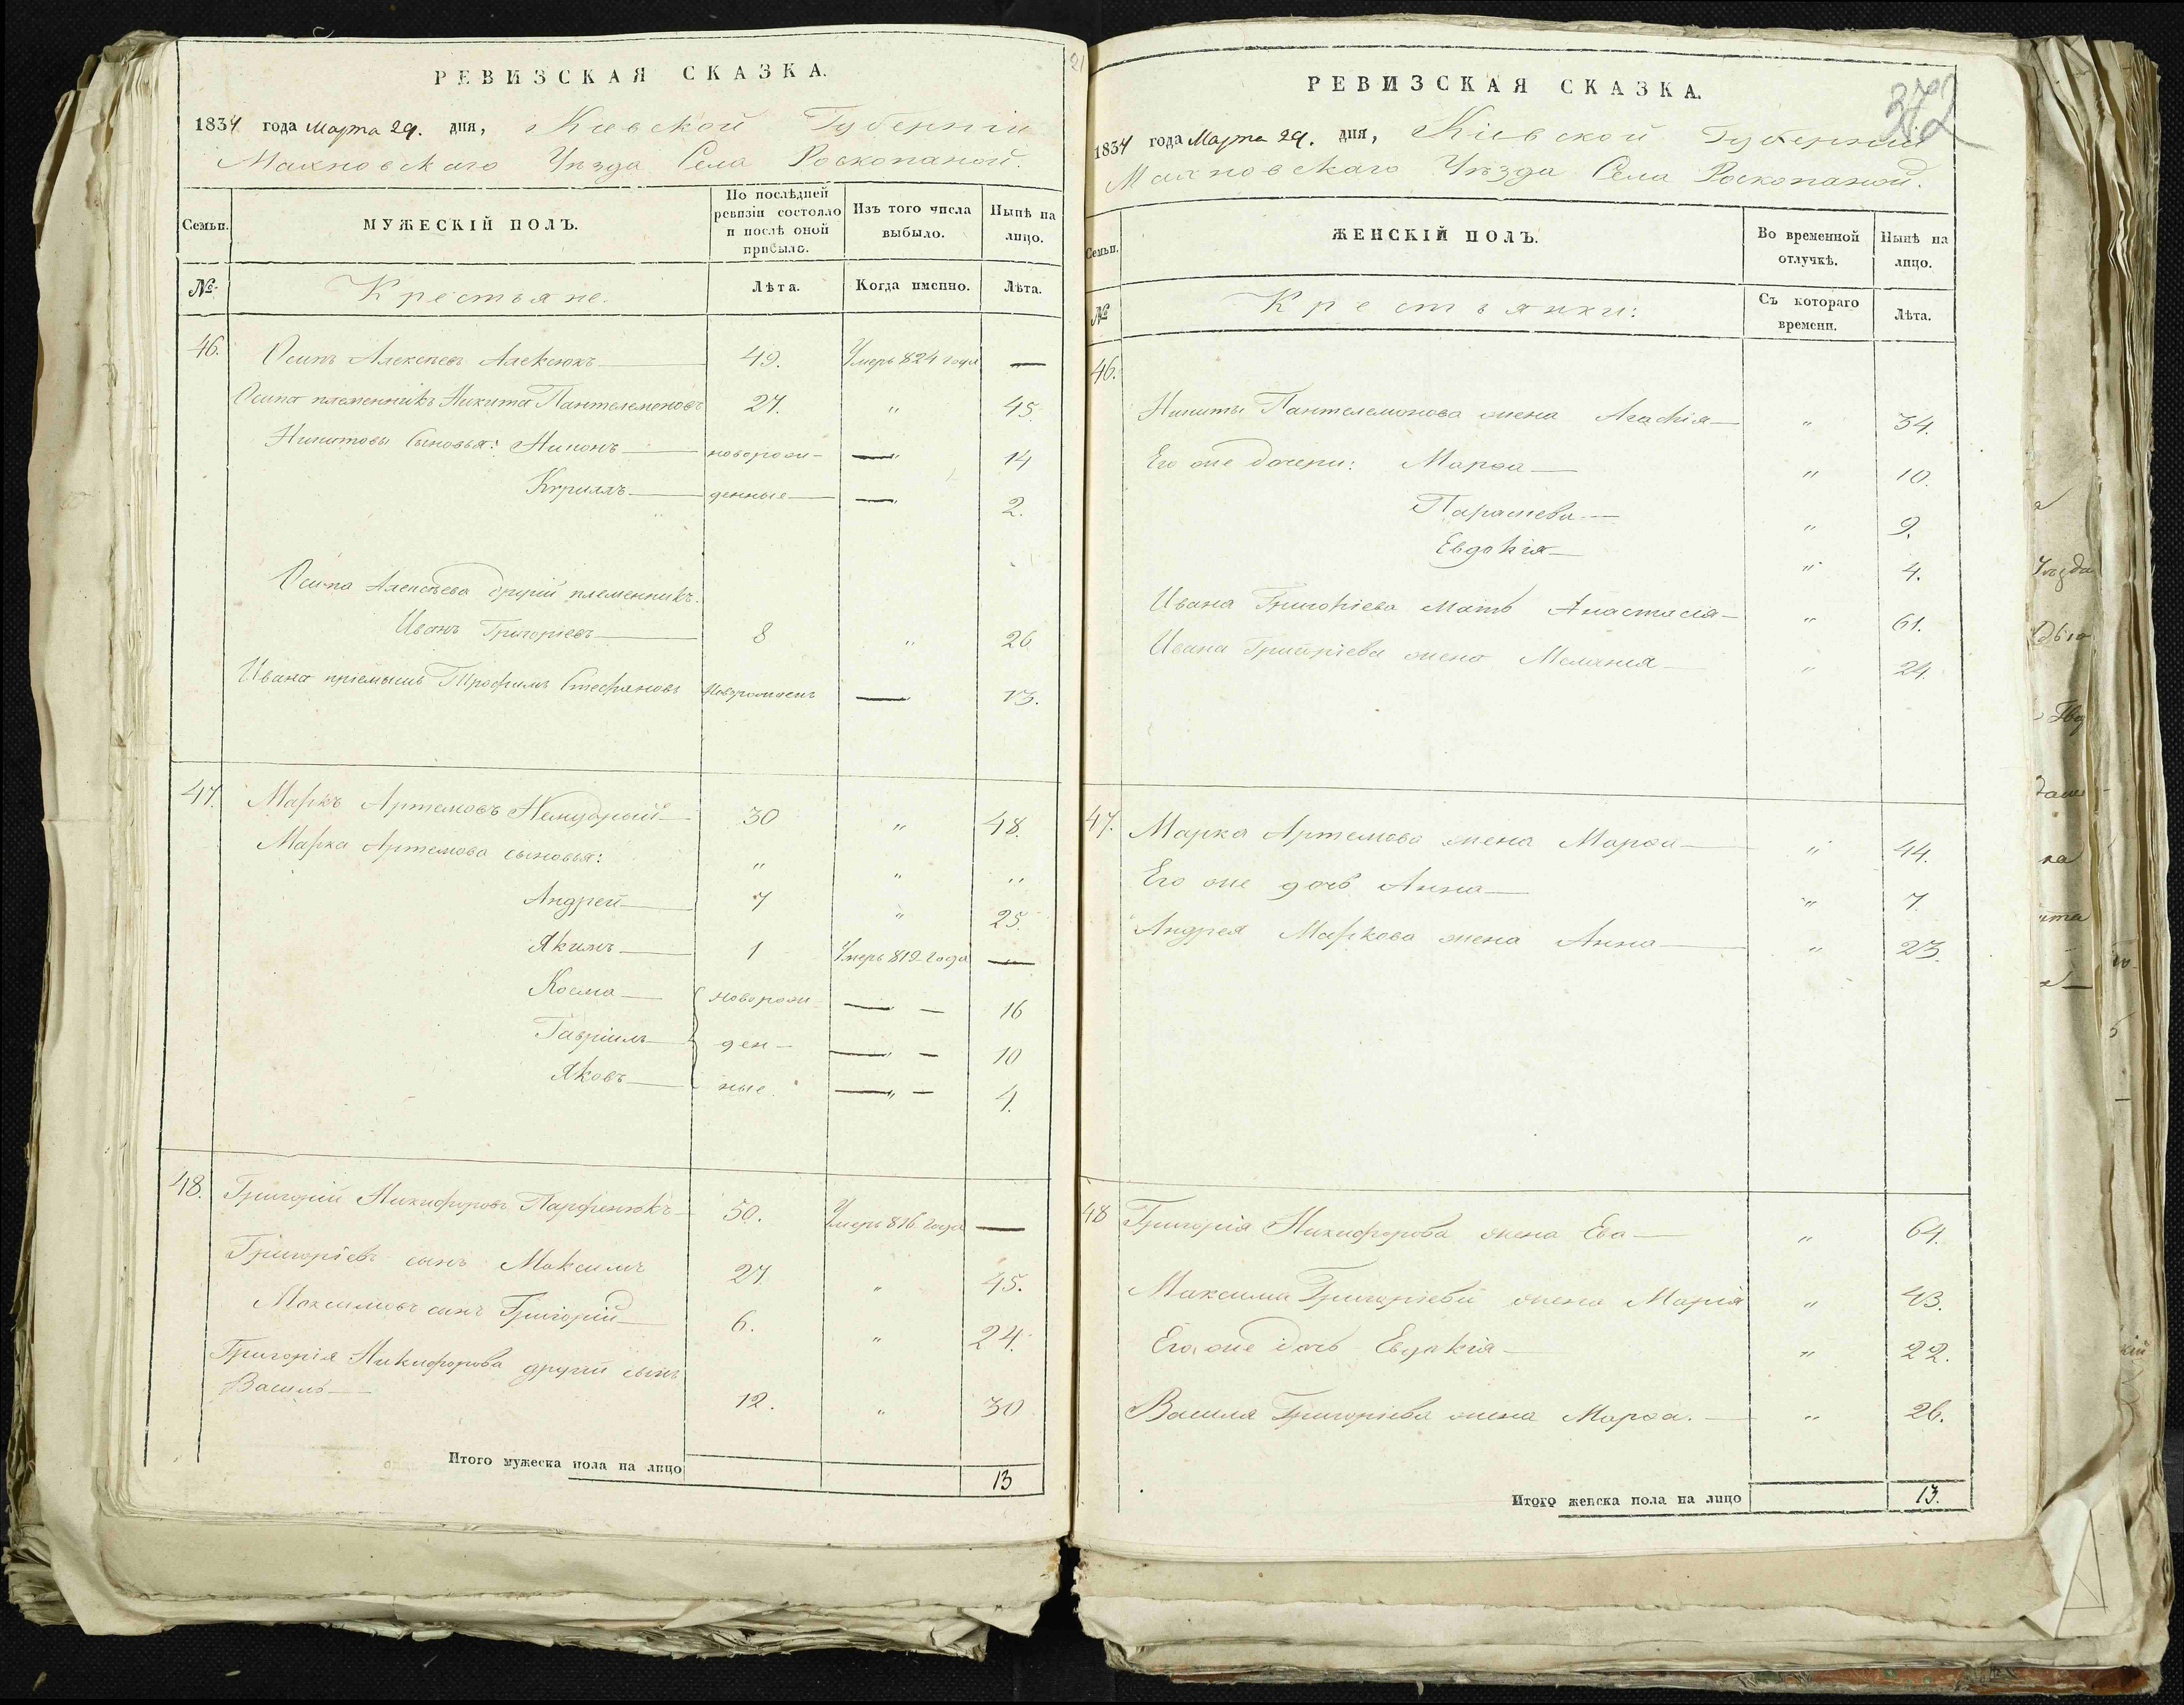 РЕВИЗСКАЯ СКАЗКА.
1834 года Марта 29. дня, Кіевской Губерніи
Махновскаго Уѣзда Села Роскопаной.
Семьи.
МУЖЕСКІЙ ПОЛЪ.
По послѣдней ревизіи состояло и послѣ оной прибыло.
Изъ того числа выбыло.
Нынѣ на лицо.
№
Крестьяне.
Лѣта.
Когда именно.
Лѣта.
46. Осипъ Алексѣевъ Алексюкъ 49. Умеръ 824 года —
Осипа племенникъ Никита Пантелемоновъ 27. " 45.
Никитовы сыновья: Никонъ новорож- — 14
Кириллъ денные — 2.
Осипа Алексѣева другій племенникъ.
Иванъ Григоріевъ 8 " 26
Ивана пріемышъ Трофимъ Стефановъ новорожденъ — 13.
47. Маркъ Артемовъ Немудрый 30 " 48.
Марка Артемова сыновья: " " "
Андрей 7 " 25.
Якимъ 1 Умеръ 819 года —
Косма новорож- — — 16
Гавріилъ ден- — — 10
Яковъ ные — — 4.
48. Григорій Никифоровъ Парфенюкъ 50. Умеръ 816 года —
Григоріевъ сынъ Максимъ 27. " 45.
Максимовъ сынъ Григорій 6. " 24.
Григорія Никифорова другій сынъ
Василь 12. " 30
Итого мужеска пола на лицо 13
РЕВИЗСКАЯ СКАЗКА.
1834 года Марта 29. дня, Кіевской Губерніи
Махновскаго Уѣзда Села Роскопаной.
Семьи.
ЖЕНСКІЙ ПОЛЪ.
Во временной отлучкѣ.
Нынѣ на лицо.
№
Крестьянки:
Съ котораго времени.
Лѣта.
46.
Никиты Пантелемонова жена Агафія " 34.
Его же дочери: Марѳа " 10.
Параскева " 9.
Евдокія " 4.
Ивана Григоріева мать Анастасія " 61.
Ивана Григоріева жена Меланія " 24.
47. Марка Артемова жена Марѳа " 44.
Его же дочь Анна " 7.
Андрея Маркова жена Анна " 23.
48 Григорія Никифорова жена Ева " 64.
Максима Григоріева жена Марія " 43.
Его же дочь Евдокія " 22.
Василя Григоріева жена Марѳа. " 26.
Итого женска пола на лицо 13.